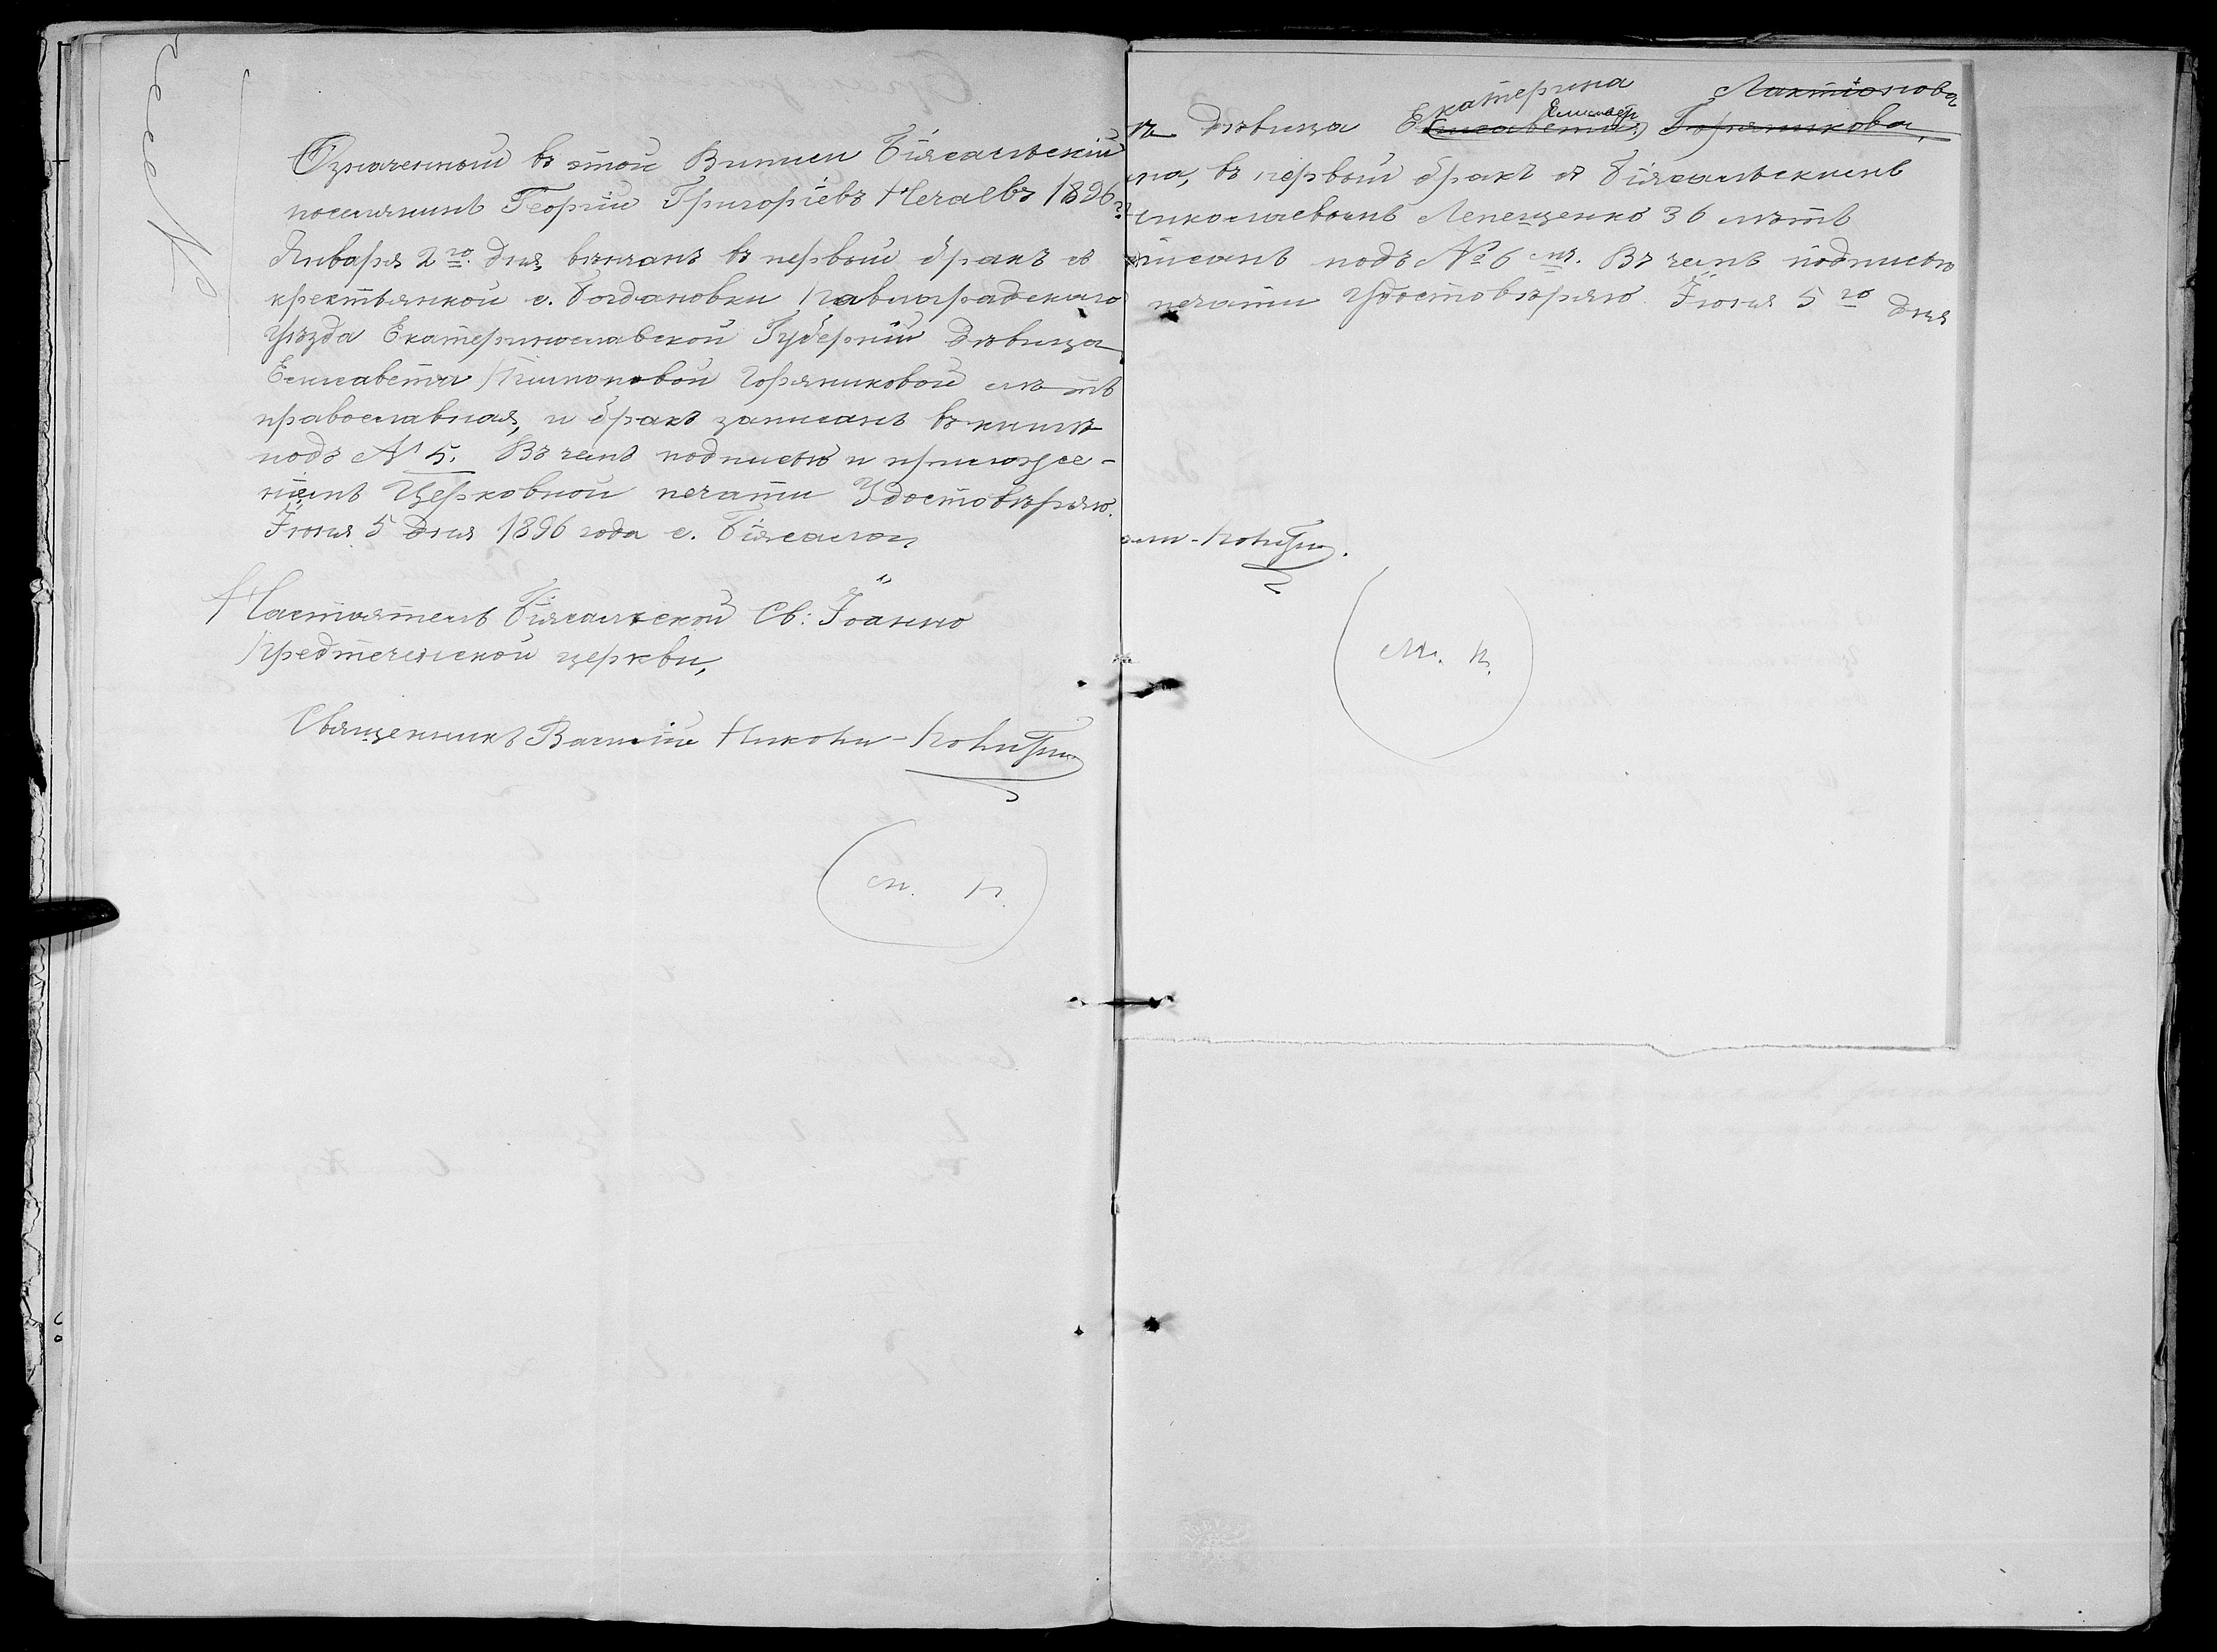 Означенный въ этой Выписи Біясальскій
поселянинъ Георгій Григоріевъ Нечаевъ 1896
Января 2го дня, вѣнчанъ въ первый бракъ съ
крестьянкой с. Богдановки Павлоградскаго
Уѣзда Екатеринославской Губерніи дѣвица
Елисавета Горяниковой лѣтъ
православная, и бракъ записанъ въ книгѣ
подъ № 5. Въ чемъ подписью и приложе-
ніемъ Церковной печати Удостовѣряю.
Іюня 5 дня 1896 года с. Біясала
Настоятель Біясальской Св: Іоанно
Предтеченской церкви,
Священникъ
М. П.
Екатерина Лактіонова
дѣвица Елисавета Горяникова,
на, въ первый бракъ съ Біясальскимъ
Николаевымъ Лепещенко 36 лѣтъ
писанъ подъ № 6 мъ. Въ чемъ подписью
печати Удостовѣряю. Іюня 5го дня
М. П.